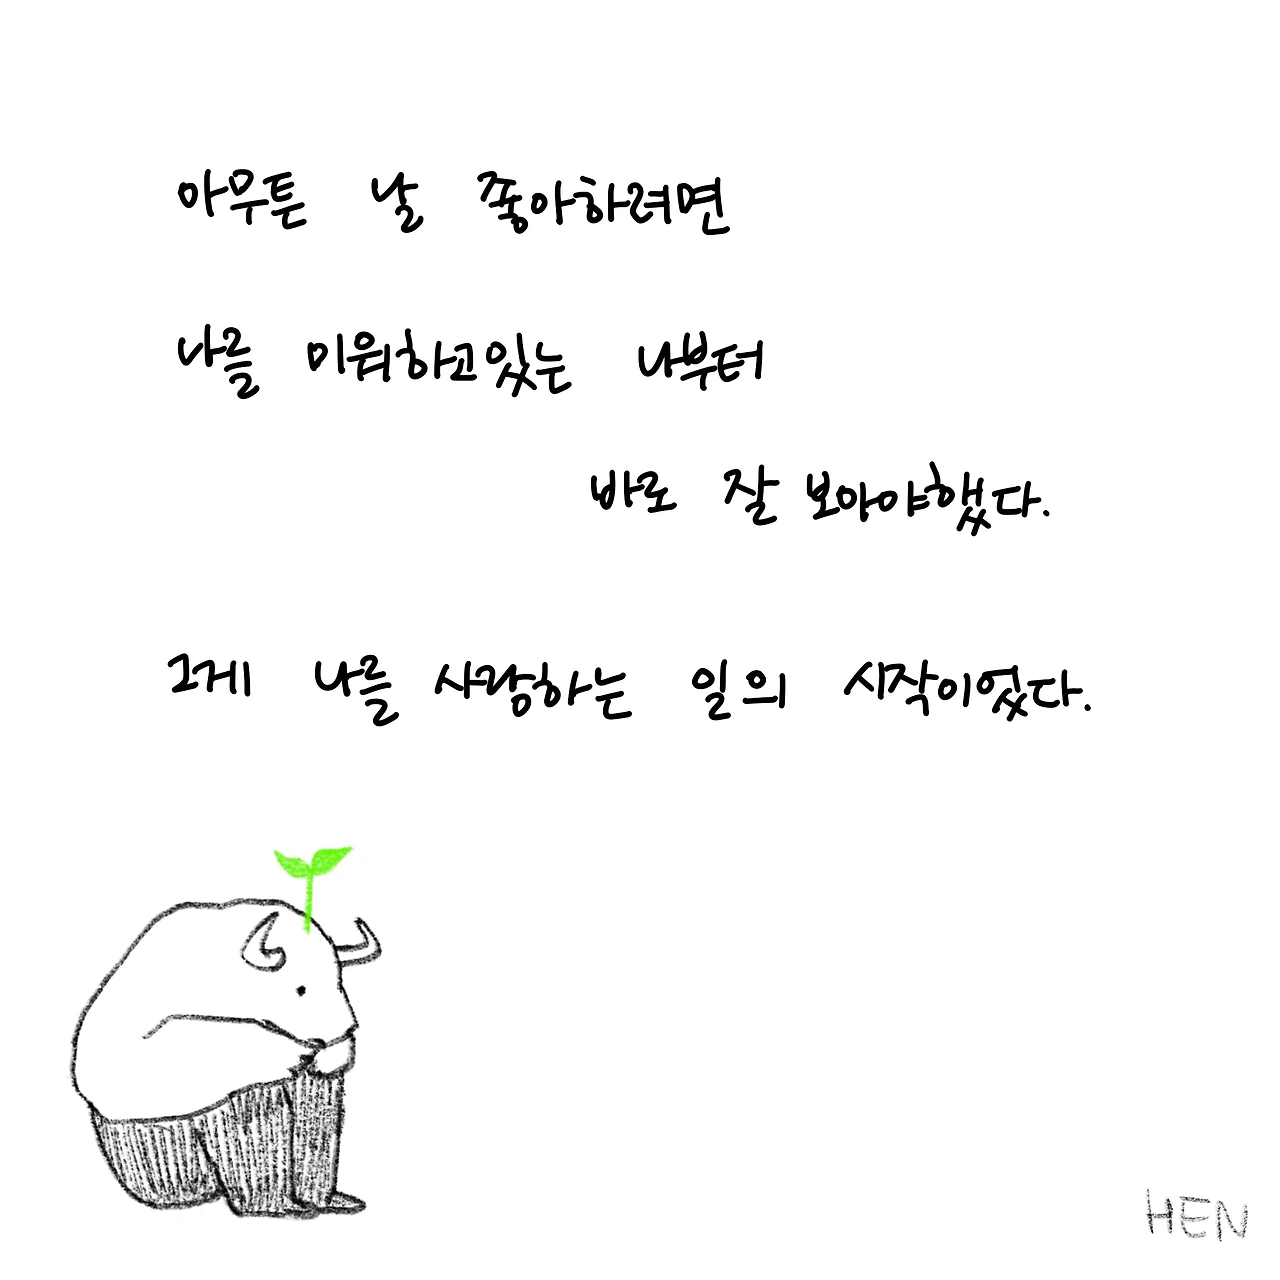 아무튼 날 좋아하려면
나를 미워하고있는 나부터
바로 잘 보아야했다.
그게 나를 사랑하는 일의 시작이었다.
HEN